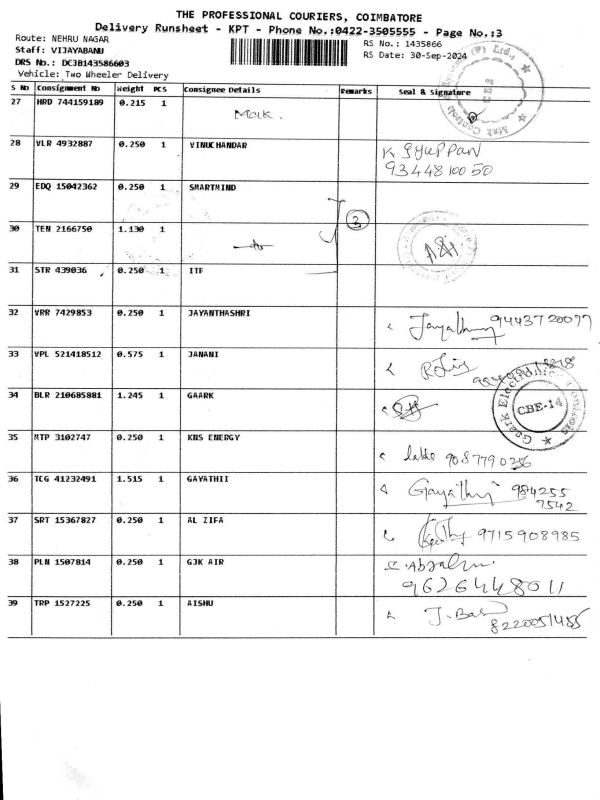 THE PROFESSIONAL COURIERS, COIMBATORE
Delivery Runsheet - KPT - Phone No.:0422-3505555 - Page No.:3
Route: NEHRU NAGAR
RS No.: 1435866
Staff: VIJAYABANU
RS Date: 30-Sep-2024
DRS No.: DCJB143586603
Vehicle: Two Wheeler Delivery
S No Consignment No Weight PCS Consignee Details Remarks Seal & Signature
27 HRD 744159189 0.215 1
28 VLR 4932887 0.250 1 VINUCHANDAR K Iyyappan
9344810050
29 EDQ 15042362 0.250 1 SMARTMIND
3
30 TEN 2166750 1.130 1
31 STR 439036 0.250 1 ITF
32 VRR 7429853 0.250 1 JAYANTHASHRI
33 VPL 521418512 0.575 1 JANANI
34 BLR 210685881 1.245 1 GAARK CBE-14
35 MTP 3102747 0.250 1 KNS ENERGY 9087790256
36 TCG 41232491 1.515 1 GAYATHII Gayathri 984255
7542
37 SRT 15367827 0.250 1 AL ZIFA 9715908985
38 PLN 1507814 0.250 1 GJK AIR
9626448011
39 TRP 1527225 0.250 1 AISHU